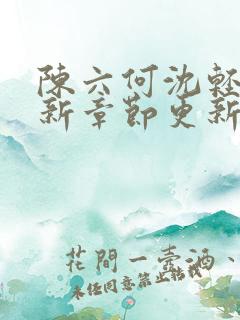 陳六何沈輕
新章節更新
花間一壺酒、
未經同意禁止轉載